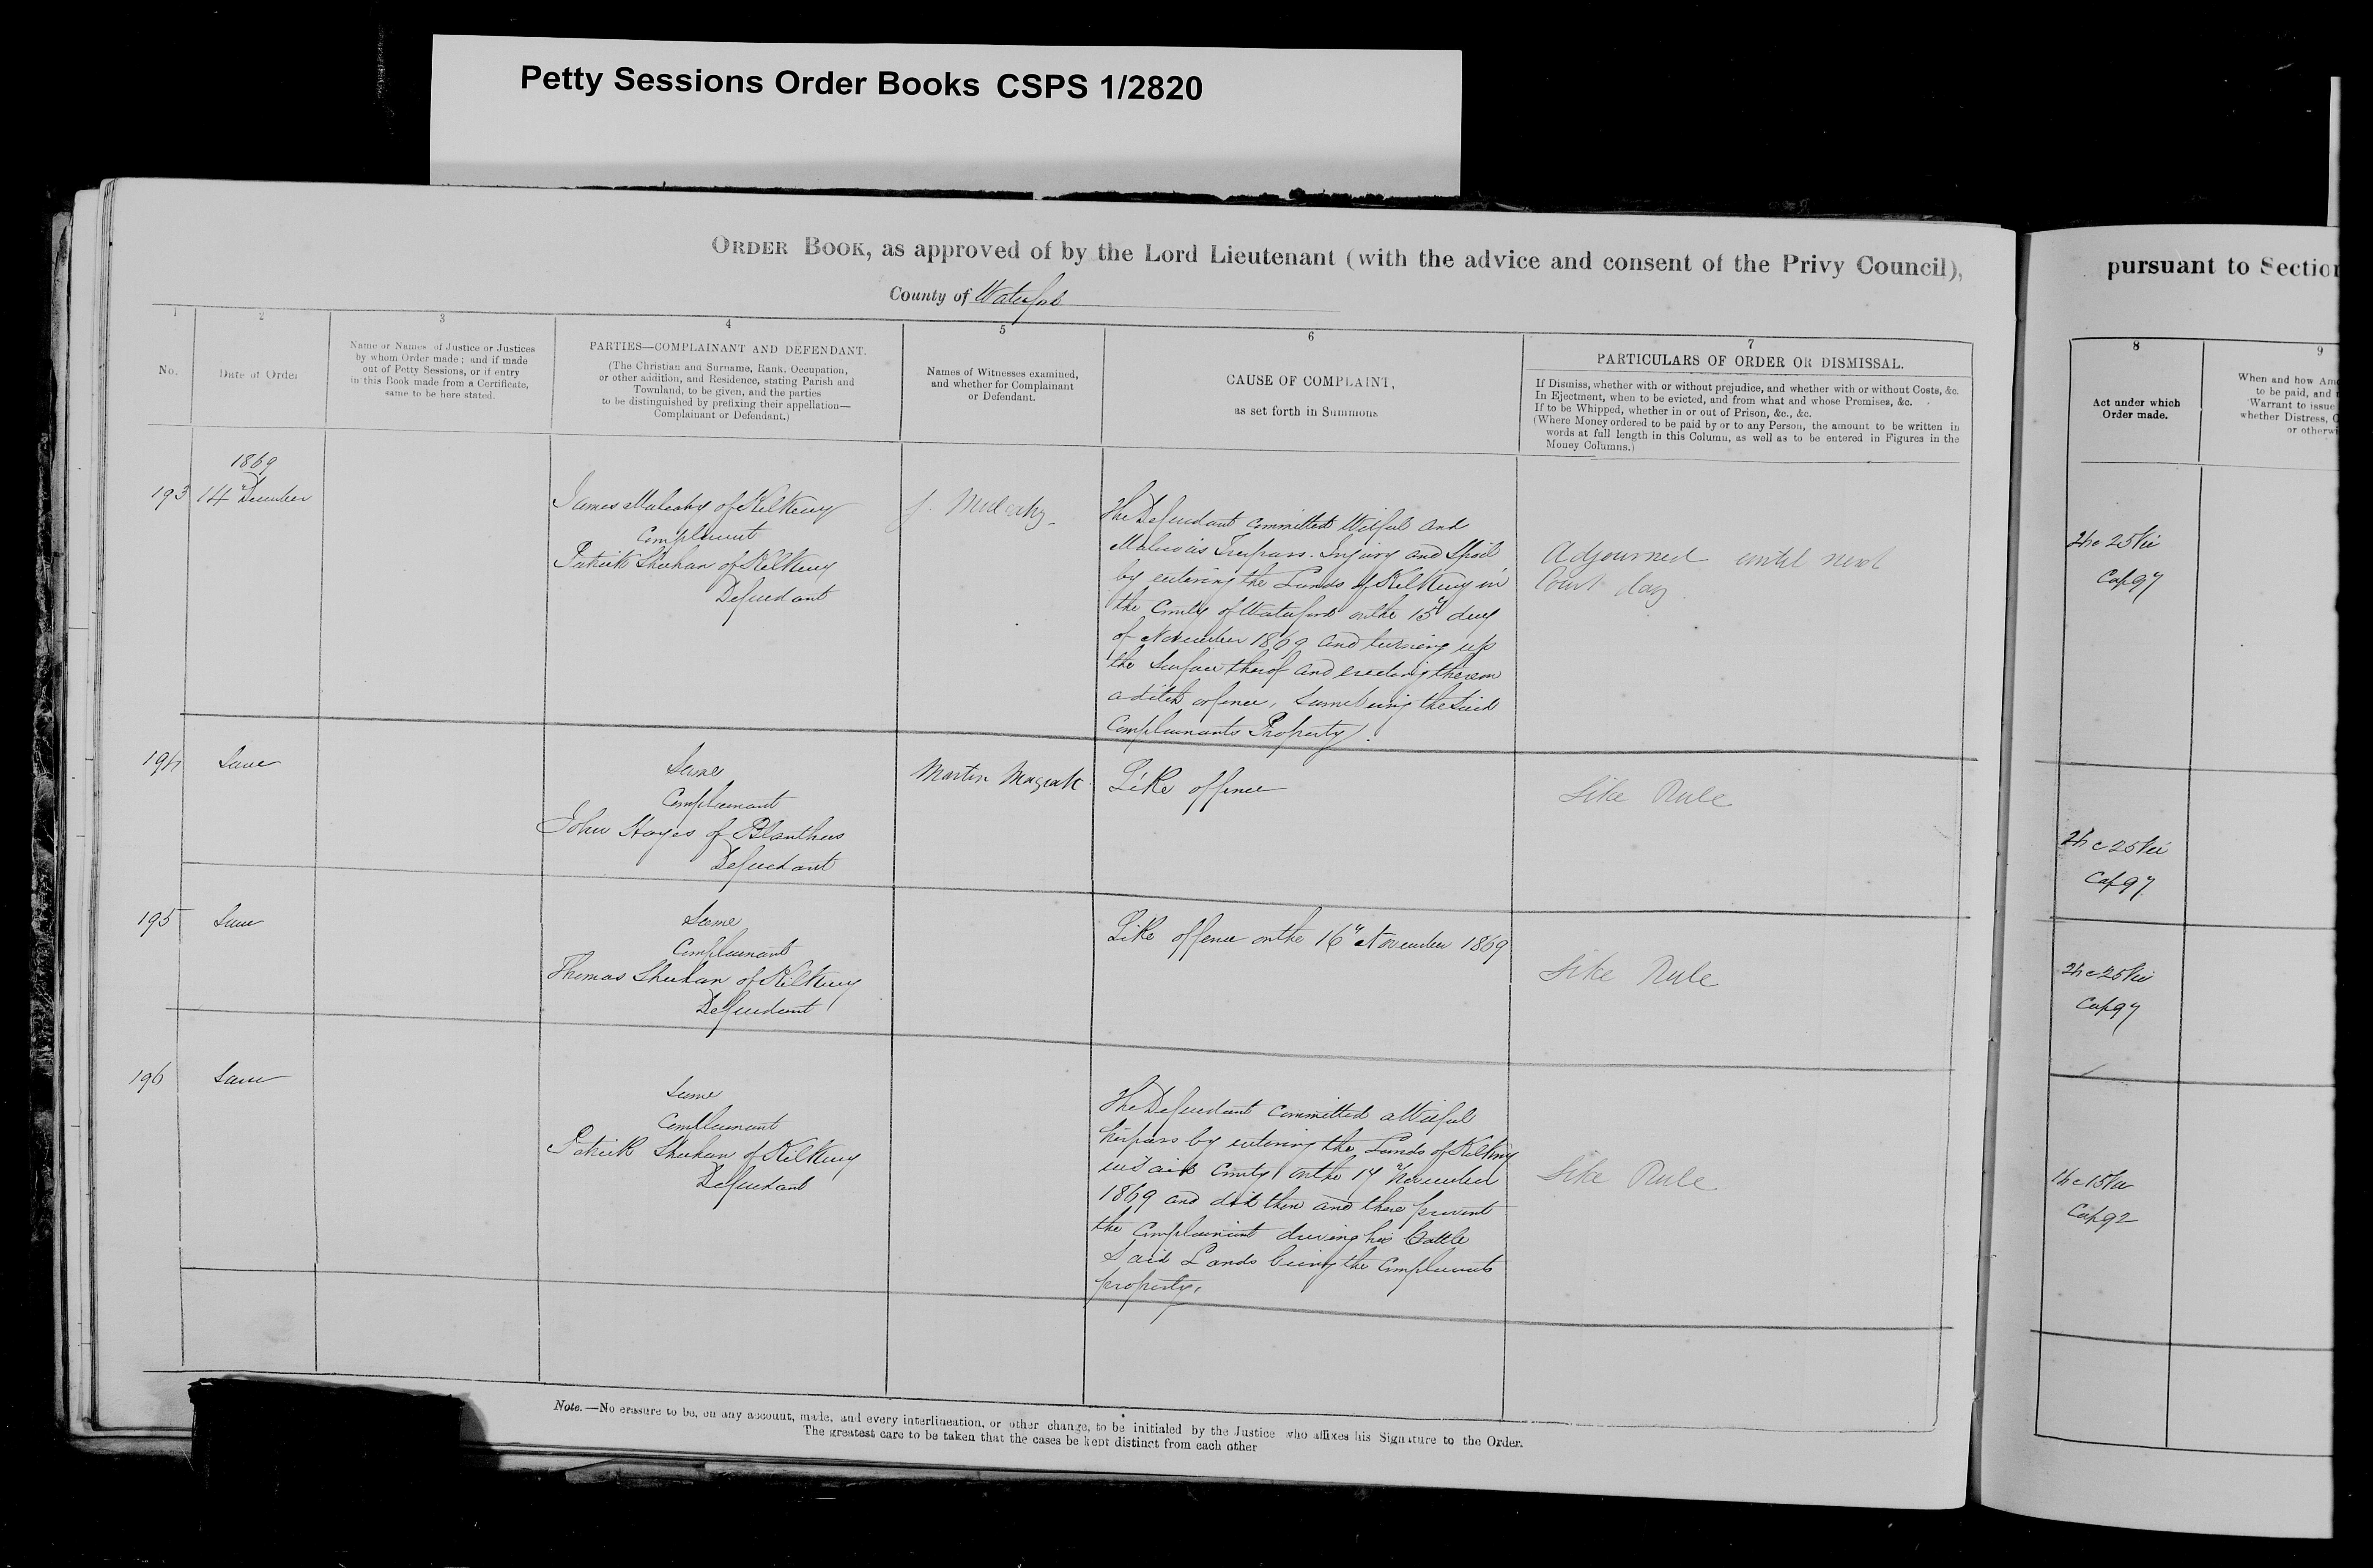 Petty Sessions Order Books CSPS 1/2820
ORDER BOOK, as approved of by the Lord Lieutenant (with the advice and consent of the Privy Council),
pursuant to Section
County of Waterford
1
2
3
4
5
6
7
8
9
No.
Date of Order
Name or Names of Justice or Justices
by whom Order made; and if made
out of Petty Sessions, or if entry
in this Book made from a Certificate,
same to be here stated.
PARTIES—COMPLAINANT AND DEFENDANT.
(The Christian and Surname, Rank, Occupation,
or other addition, and Residence, stating Parish and
Townland, to be given, and the parties
to be distinguished by prefixing their appellation—
Complainant or Defendant.)
Names of Witnesses examined,
and whether for Complainant
or Defendant.
CAUSE OF COMPLAINT,
as set forth in Summons
PARTICULARS OF ORDER OR DISMISSAL.
If Dismiss, whether with or without prejudice, and whether with or without Costs, &c.
In Ejectment, when to be evicted, and from what and whose Premises, &c.
If to be Whipped, whether in or out of Prison, &c., &c.
(Where Money ordered to be paid by or to any Person, the amount to be written in
words at full length in this Column, as well as to be entered in Figures in the
Money Columns.)
Act under which
Order made.
When and how Am
to be paid, and
Warrant to issue
whether Distress,
or otherwi
1869
193
14 December
James Mulcahy of Kilkeny
Complainant
Patrick Sheehan of Kilkeny
Defendant
J. Mulcahy
The Defendant committed Wilful and
Malicious Trespass. Injury and Spoil
by entering the Lands of Kilkeny in
the County of Waterford on the 15th day
of November 1869 and turning up
the Surface thereof and erecting thereon
a ditch or fence, same being the Said
Complainants Property.
Adjourned until next
Court day.
24 & 25 Vic
Cap 97
194
Same
Same
Complainant
John Hayes of
Defendant
Martin
Like offence
Like Rule
24 & 25 Vic
Cap 97
195
Same
Same
Complainant
Thomas Sheehan of Kilkeny
Defendant
Like offence on the 16th November 1869
Like Rule
24 & 25 Vic
Cap 97
196
Same
Same
Complainant
Patrick Sheehan of Kilkeny
Defendant
The Defendant committed a Wilful
trespass by entering the Lands of Kilkeny
in Said County on the 17th November
1869 and did then and there prevent
the Complainant driving his Cattle
Said Lands being the Complainants
property.
Like Rule
14 & 15 Vic
Cap 92
Note.—No erasure to be, on any account, made, and every interlineation, or other change, to be initialed by the Justice who affixes his Signature to the Order.
The greatest care to be taken that the cases be kept distinct from each other